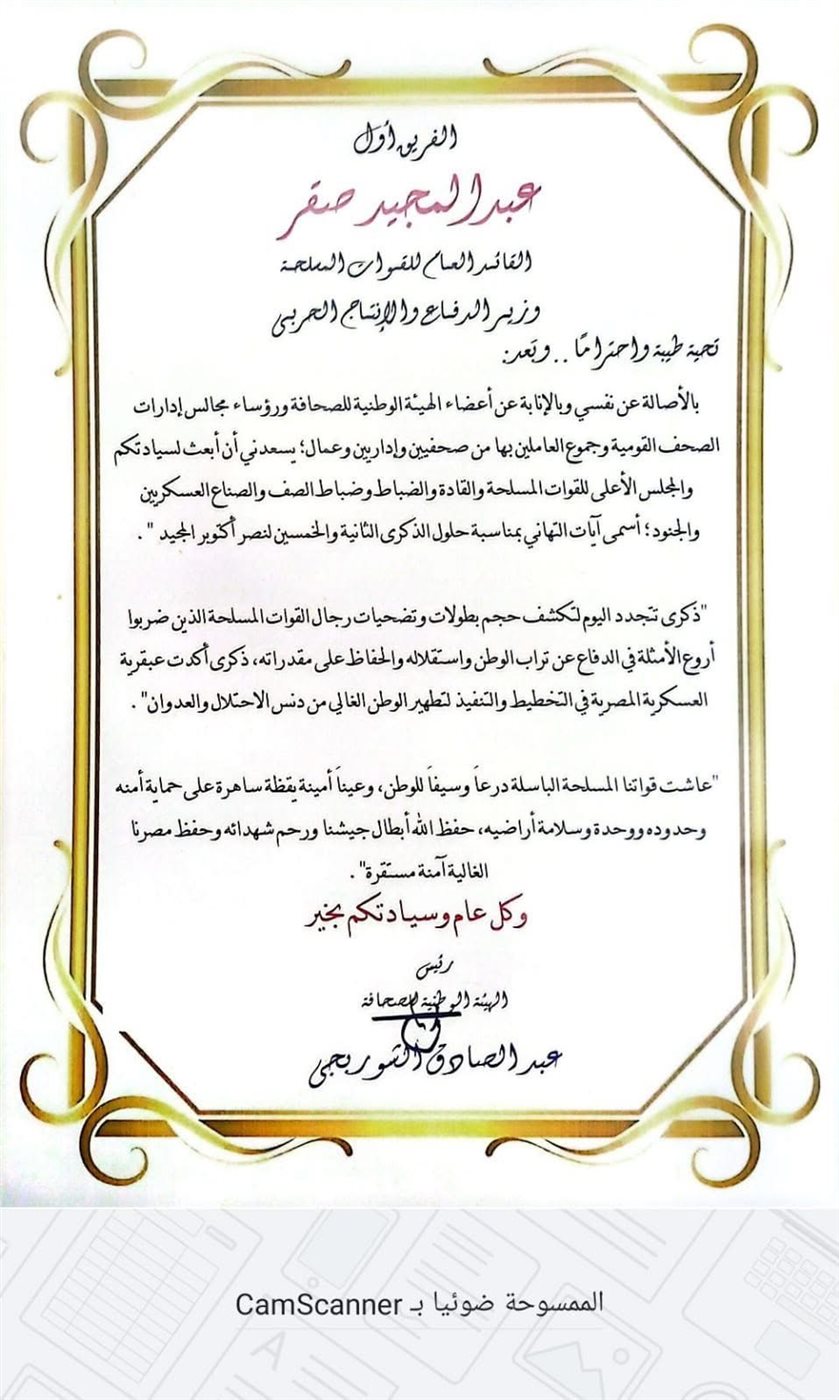 الفريق أول
عبد المجيد صقر
القائد العام للقوات المسلحة
وزير الدفاع والإنتاج الحربى
تحية طيبة واحترامًا .. وبَعد:
بالأصالة عن نفسي وبالإنابة عن أعضاء الهيئة الوطنية للصحافة ورؤساء مجالس إدارات
الصحف القومية وجموع العاملين بها من صحفيين وإداريين وعمال؛ يسعدني أن أبعث لسيادتكم
والمجلس الأعلى للقوات المسلحة والقادة والضباط وضباط الصف والصناع العسكريين
والجنود؛ أسمى آيات التهاني بمناسبة حلول الذكرى الثانية والخمسين لنصر أكتوبر المجيد " .
"ذكرى تتجدد اليوم لتكشف حجم بطولات وتضحيات رجال القوات المسلحة الذين ضربوا
أروع الأمثلة في الدفاع عن تراب الوطن واستقلاله والحفاظ على مقدراته، ذكرى أكدت عبقرية
العسكرية المصرية في التخطيط والتنفيذ لتطهير الوطن الغالي من دنس الاحتلال والعدوان" .
"عاشت قواتنا المسلحة الباسلة درعاً وسيفاً للوطن، وعيناً أمينة يقظة ساهرة على حماية أمنه
وحدوده ووحدة وسلامة أراضيه، حفظ الله أبطال جيشنا ورحم شهدائه وحفظ مصرنا
الغالية آمنة مستقرة" .
وكل عام وسيادتكم بخير
رئيس
الهيئة الوطنية للصحافة
عبد الصادق الشوربجى
الممسوحة ضوئيا بـ CamScanner